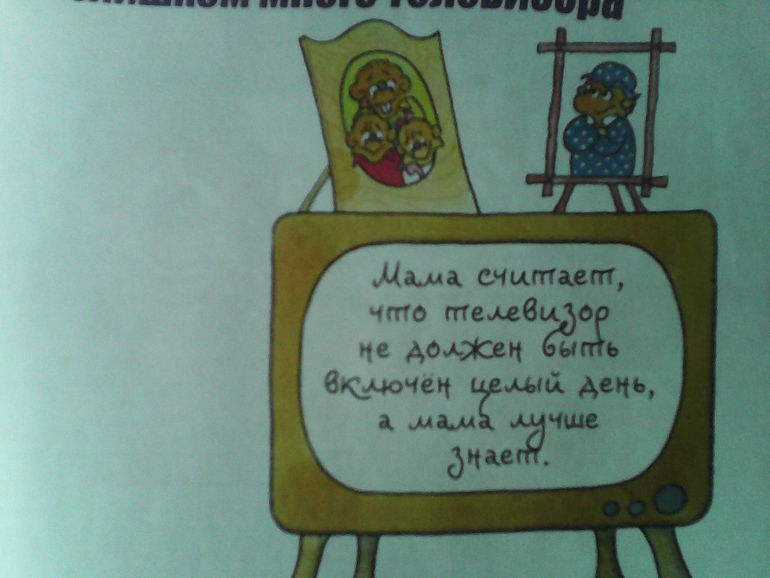 много телевизора
Мама считает,
что телевизор
не должен быть
включён целый день,
а мама лучше
знает.